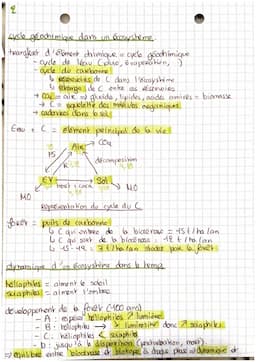 cycle géochimique dans un écosystème.
transfert d'élément chimique = cycle géochimique
- cycle de l'eau (pluie, évaporation, )
- cycle du carbone
↳ réservoirs de C dans l'écosystème
↳ échange de C entre les réservoirs
→ CO₂ = air → glucide, lipides, acides aminés = biomasse
→ C = squelette des molécules organiques
→ cadavres dans le sol
Eau + C = élément principal de la vie
Air → CO₂
PS
décomposition
EV → Sol
mort
MO
MO
Représentation du cycle du C
forêt = puits de carbone
↳ C qui entre de la biocénose = 15 t/ha/an
↳ C qui sort de la biocénose =
dynamique d'un écosystème dans le temps
héliophiles = aiment le soleil
sciaphiles = aiment l'ombre.
développement de la forêt
- A : espèces héliophiles lumière
- B : héliophiles → lumière donc sciaphiles
- C : héliophiles < sciaphiles
- D : jusqu'à la disparition
⇒ équilibre entre biocénose et biotope à chaque phase